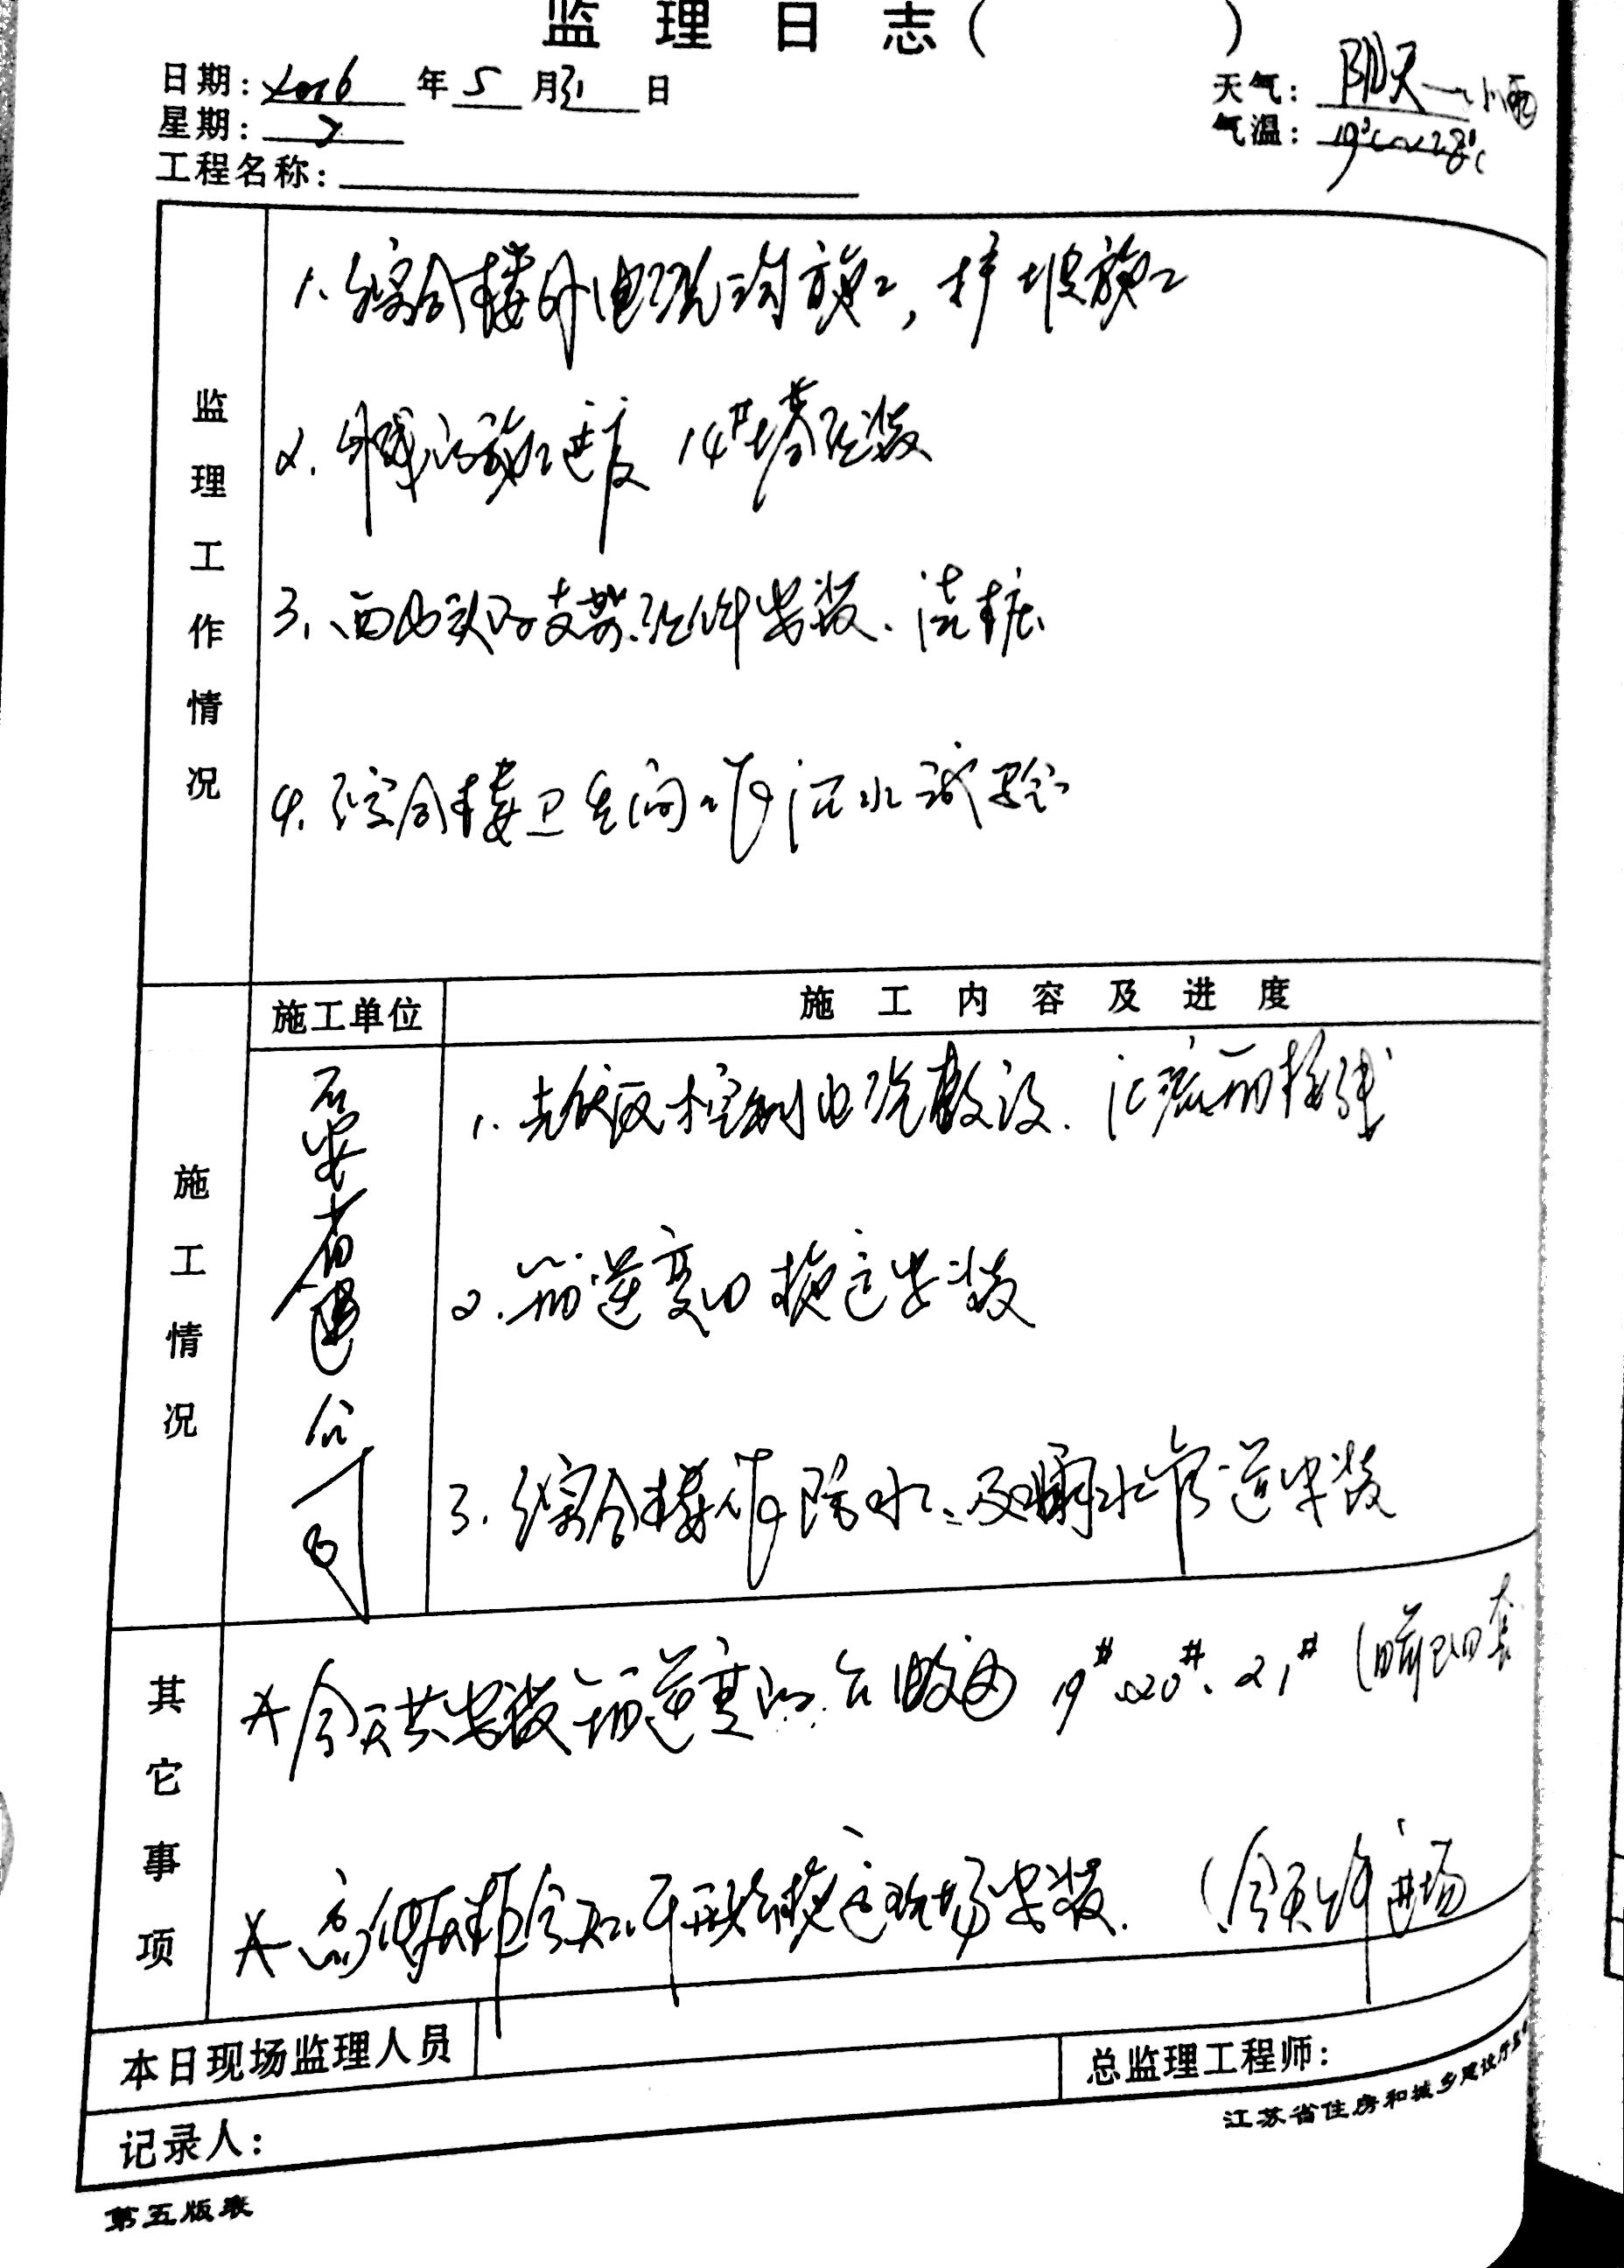 监理日志（ ）
日期：2016 年 5 月 31 日
天气：阴天～小雨
星期：2
气温：19℃～28℃
工程名称：
监理工作情况
1. 综合楼外电缆沟施工，护坡施工
2. 外线施工进度 14#塔组装
3. 支架组件安装、浇桩
4. 综合楼卫生间 水试验
施工单位
施工内容及进度
施工情况
公司
1. 光伏区控制电缆敷设、汇流箱接线
2. 箱逆变 安装
3. 综合楼 防水、及 水管道安装
其它事项
今天共安装箱逆变 19#、20#、21#（目前已 套
高低压柜今天 现场安装.（今天 进场
本日现场监理人员
总监理工程师：
记录人：
江苏省住房和城乡建设厅监
第五版表